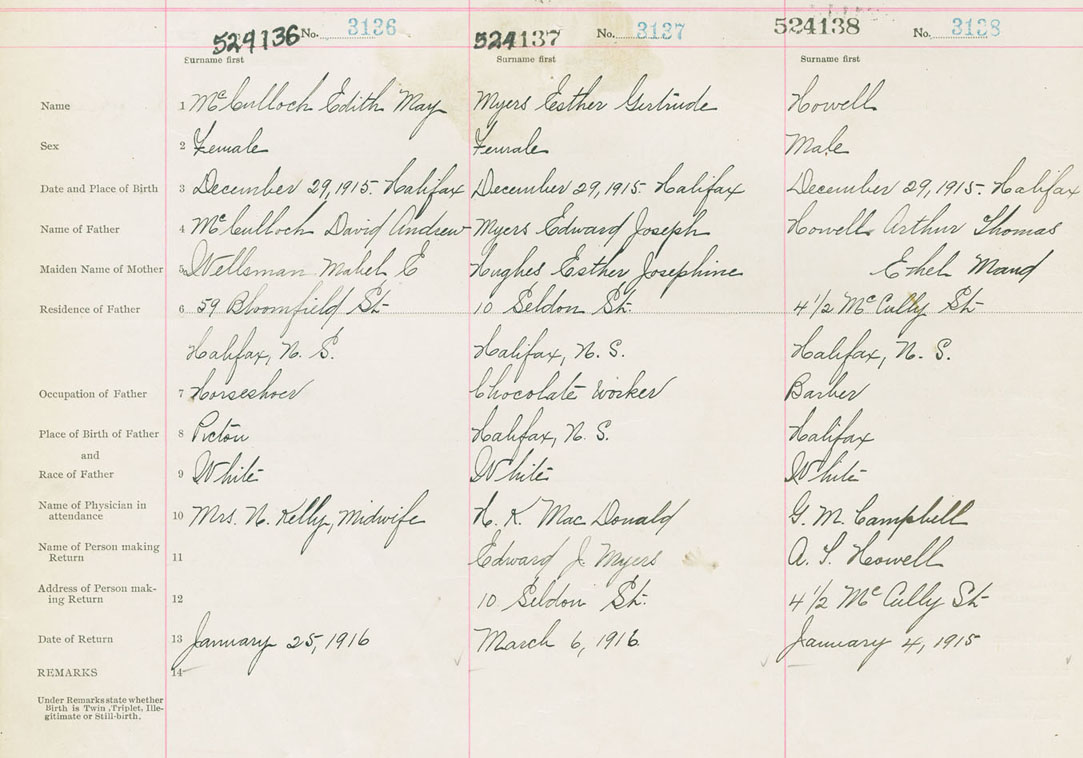 524136 No. 3136 524137 No. 3137 524138 No. 3138
Surname first Surname first Surname first
Name 1 McCulloch Edith May Myers Esther Gertrude Howell
Sex 2 Female Female Male
Date and Place of Birth 3 December 29, 1915 Halifax December 29, 1915 Halifax December 29, 1915 Halifax
Name of Father 4 McCulloch David Andrew Myers Edward Joseph Howell Arthur Thomas
Maiden Name of Mother 5 Wellsman Mabel E Hughes Esther Josephine Ethel Maud
Residence of Father 6 59 Bloomfield St 10 Seldon St. 4 1/2 McCully St
Halifax, N. S. Halifax, N. S. Halifax, N. S.
Occupation of Father 7 Horseshoer Chocolate Worker Barber
Place of Birth of Father 8 Pictou Halifax, N. S. Halifax
and
Race of Father 9 White White White
Name of Physician in
attendance 10 Mrs. N. Kelly, Midwife H. K. Mac Donald G. M. Campbell
Name of Person making
Return 11 Edward J. Myers A. T. Howell
Address of Person mak-
ing Return 12 10 Seldon St. 4 1/2 McCully St
Date of Return 13 January 25, 1916 March 6, 1916 January 4, 1915
REMARKS 14
Under Remarks state whether
Birth is Twin, Triplet, Ille-
gitimate or Still-birth.